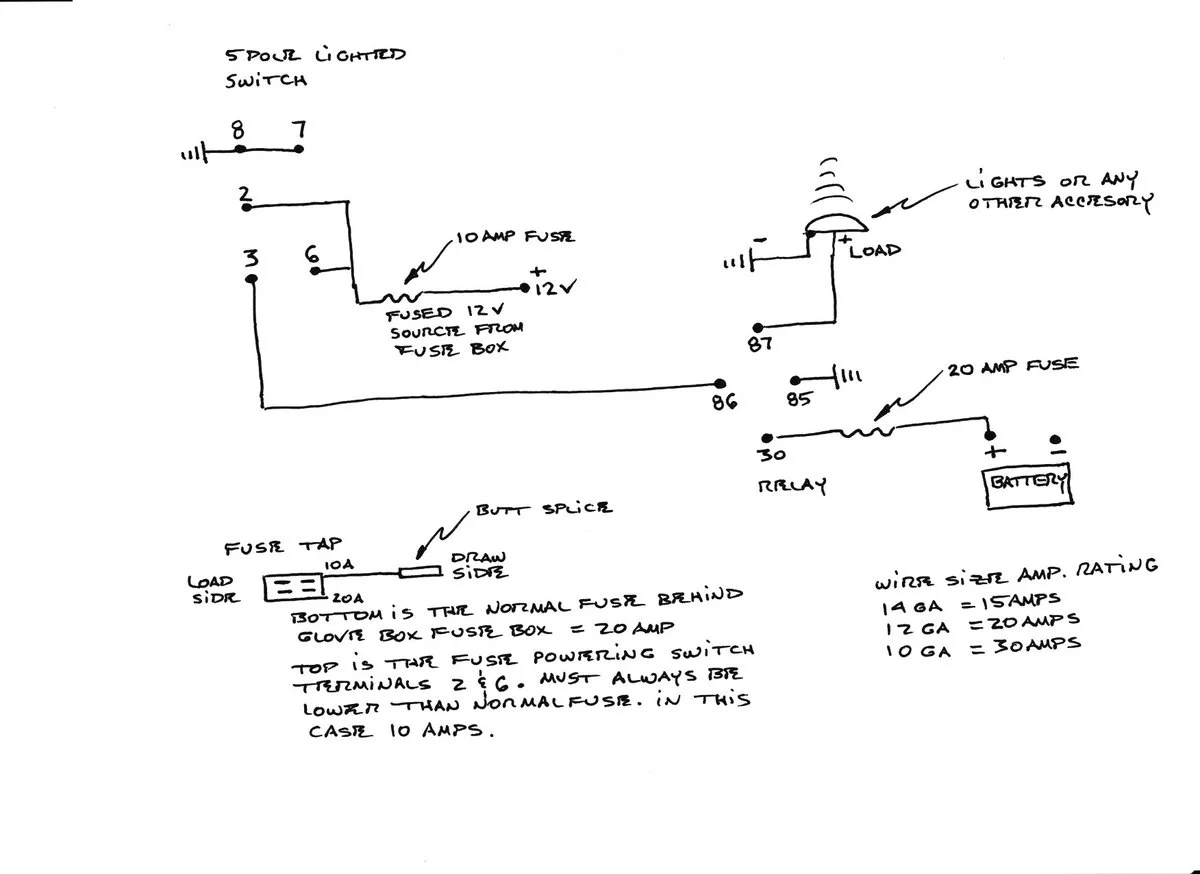 5 POLE LIGHTED
SWITCH
8 7
2
3 6
10 AMP FUSE
+
12V
FUSED 12V
SOURCE FROM
FUSE BOX
LIGHTS OR ANY
OTHER ACCESORY
- +
LOAD
87
86 85
20 AMP FUSE
30
RELAY
+ -
BATTERY
BUTT SPLICE
FUSE TAP
10A
DRAW
SIDE
LOAD
SIDE
20A
BOTTOM IS THE NORMAL FUSE BEHIND
GLOVE BOX FUSE BOX = 20 AMP
TOP IS THE FUSE POWERING SWITCH
TERMINALS 2 & 6. MUST ALWAYS BE
LOWER THAN NORMAL FUSE. IN THIS
CASE 10 AMPS.
WIRE SIZE AMP. RATING
14 GA = 15 AMPS
12 GA = 20 AMPS
10 GA = 30 AMPS